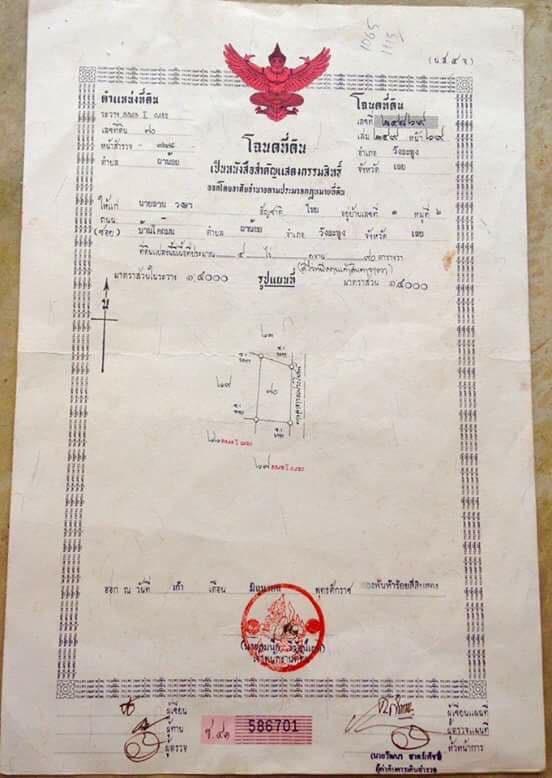 (น.ส.๔ จ.)
ตำแหน่งที่ดิน
ระวาง
เลขที่ดิน ๗๐
หน้าสำรวจ
ตำบล ผาน้อย
โฉนดที่ดิน
เลขที่ ๒๕๘๖๙
เล่ม ๒๕๙ หน้า ๖๙
อำเภอ วังสะพุง
จังหวัด เลย
โฉนดที่ดิน
เป็นหนังสือสำคัญแสดงกรรมสิทธิ์
ออกโดยอาศัยอำนาจตามประมวลกฎหมายที่ดิน
ให้แก่ นายลวน วงษา สัญชาติ ไทย อยู่บ้านเลขที่ ๑ หมู่ที่ ๖
ถนน
(ซอย) ตำบล ผาน้อย อำเภอ วังสะพุง จังหวัด เลย
ที่ดินแปลงนี้มีเนื้อที่ประมาณ ๔ ไร่ งาน ๙๐ ตารางวา
มาตราส่วนในระวาง ๑:๔๐๐๐ รูปแผนที่ มาตราส่วน ๑:๔๐๐๐
น
๗๐
ออก ณ วันที่ เก้า เดือน มิถุนายน พุทธศักราช
เจ้าพนักงานที่ดิน
ผู้เขียน
ผู้ทาน
ผู้ตรวจ
586701
ผู้เขียนแผนที่
ผู้ตรวจแผนที่
หัวหน้าการ
ผู้กำกับการเดินสำรวจ